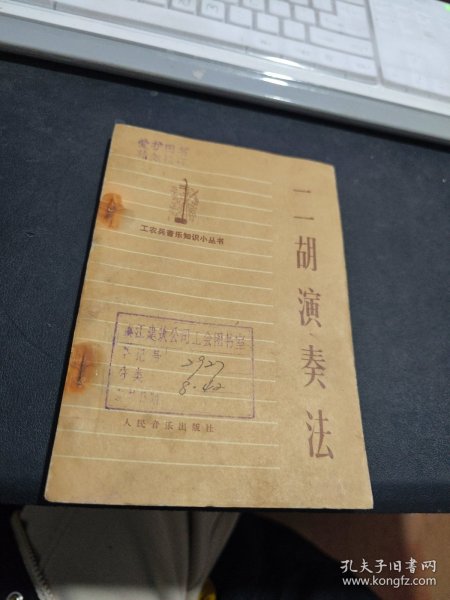 爱护图书
工农兵音乐知识小丛书
二胡演奏法
江建筑公司工会图书室
登记号 2927
分类 8.42
人民音乐出版社
孔夫子旧书网
www.kongfz.com